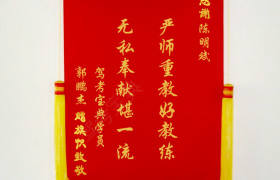 感谢陈明斌
严师重教好教练
无私奉献堪一流
驾考宝典学员
郭鹏杰赠旗致敬